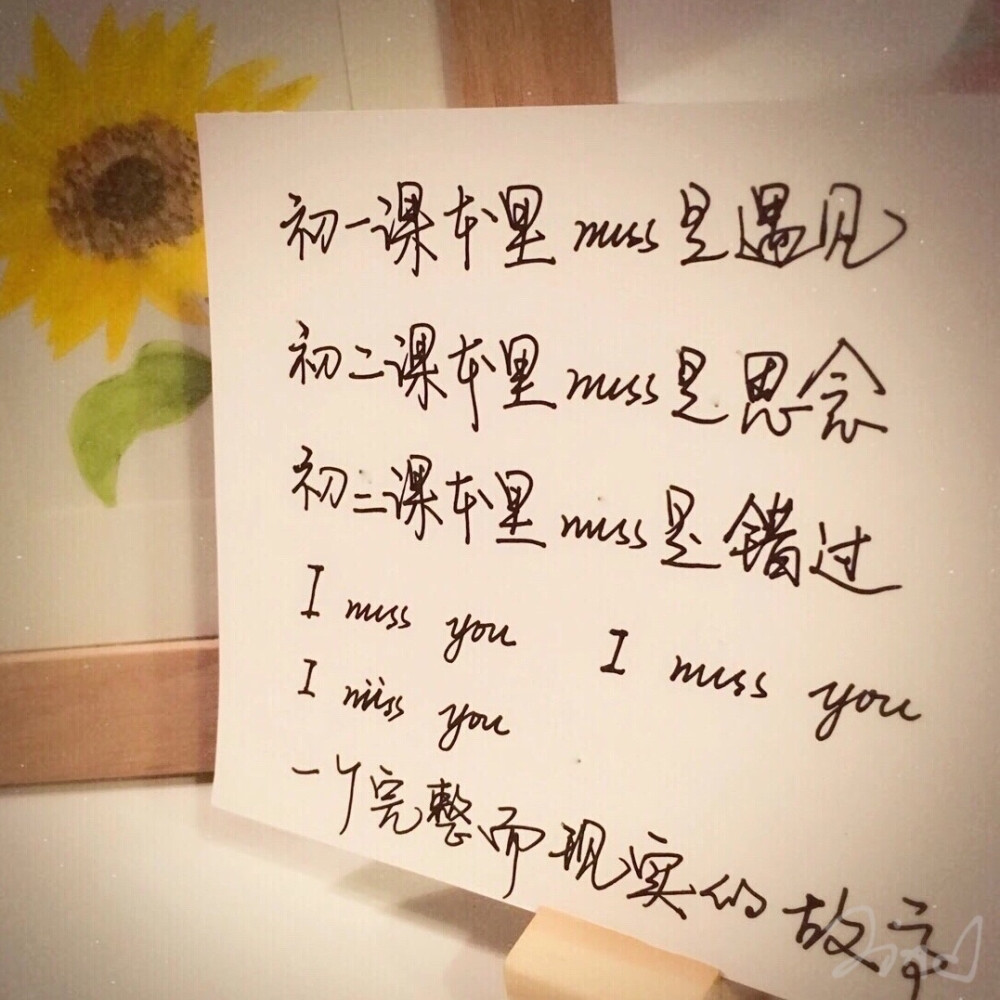 初一课本里miss是遇见
初二课本里miss是思念
初三课本里miss是错过
I miss you I miss you
I miss you
一个完整而现实的故事